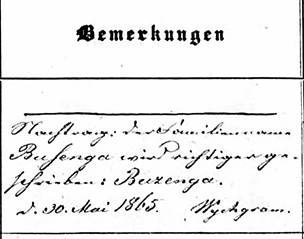 Bemerkungen
Nachtrag: der Familienname
Busenga wird richtiger ge-
schrieben: Buzenga.
d. 30. Mai 1865. Wychgram.